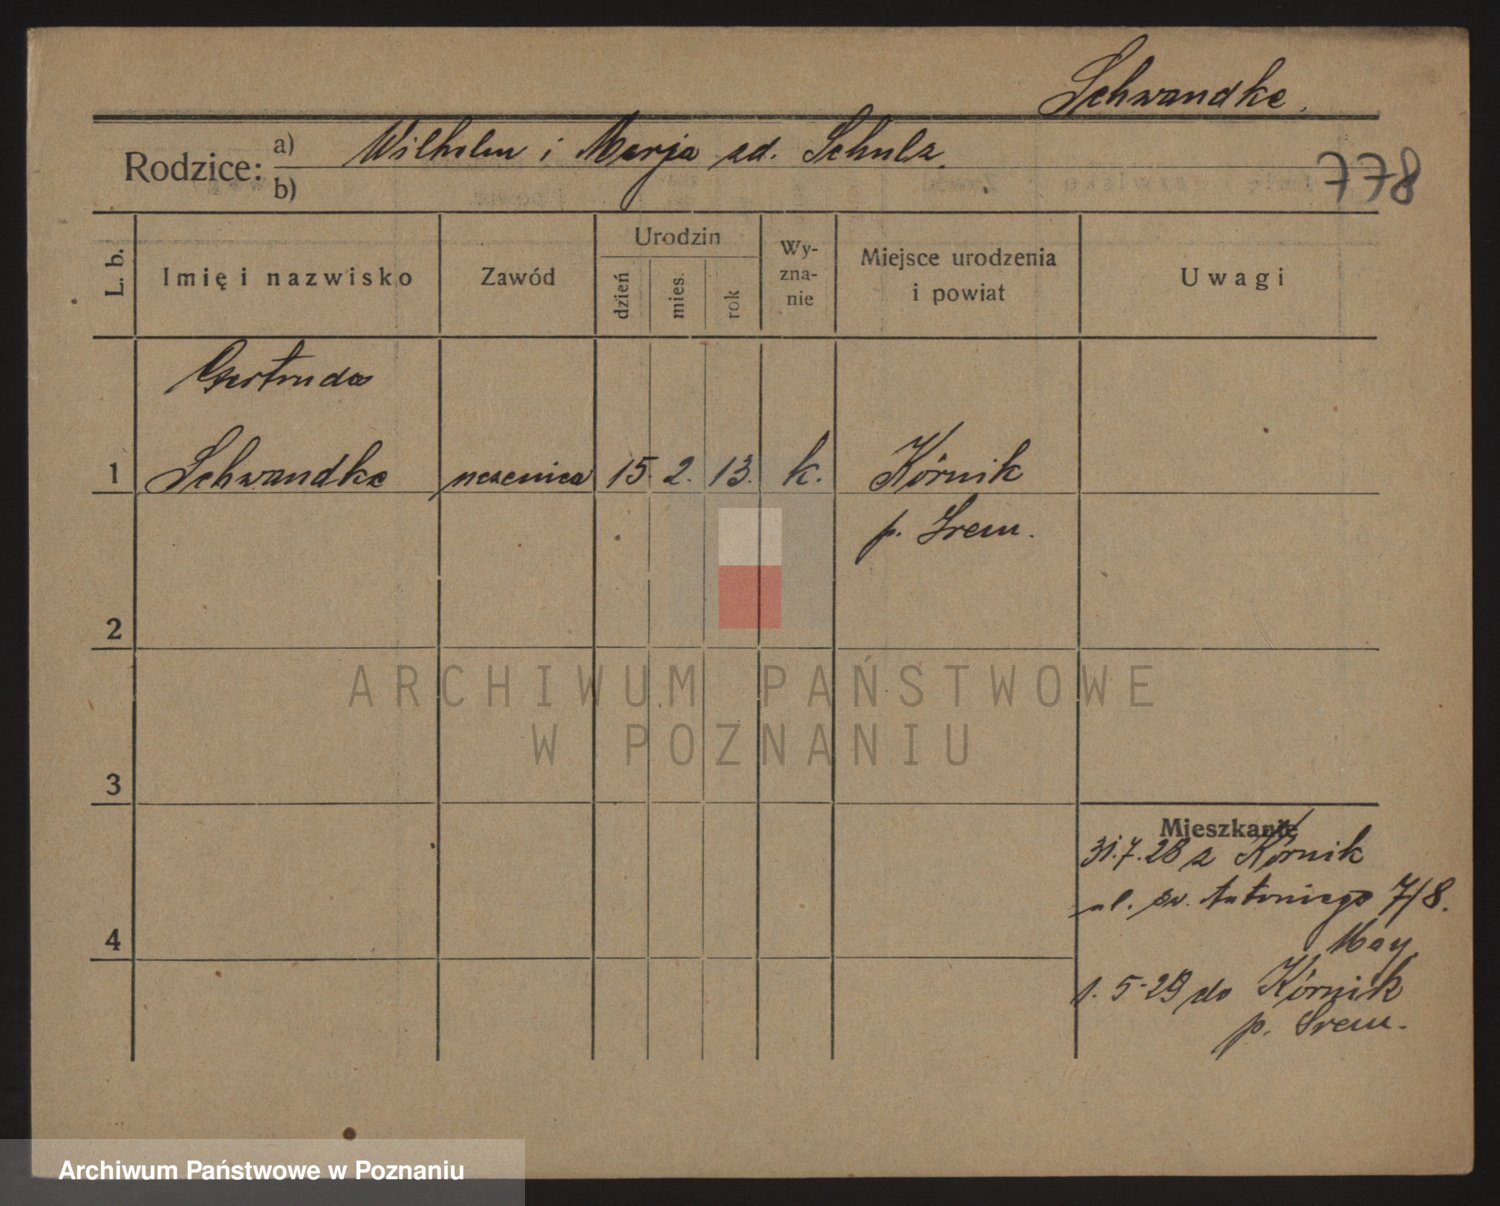 Schwandke.
Rodzice: a) Wilhelm i Marja zd. Schulz.
b)
778
L. b.
Imię i nazwisko
Zawód
Urodzin
dzień
mies.
rok
Wy-
zna-
nie
Miejsce urodzenia
i powiat
Uwagi
Gertruda
1 Schwandke uczenica 15. 2. 13. k. Kórnik
p. Śrem.
2
3
4
Mieszkanie
31.7.28 z Kórnik
ul. św. Antoniego 7/8.
May
1. 5-29 do Kórnik
p. Śrem.
ARCHIWUM PAŃSTWOWE
W POZNANIU
Archiwum Państwowe w Poznaniu